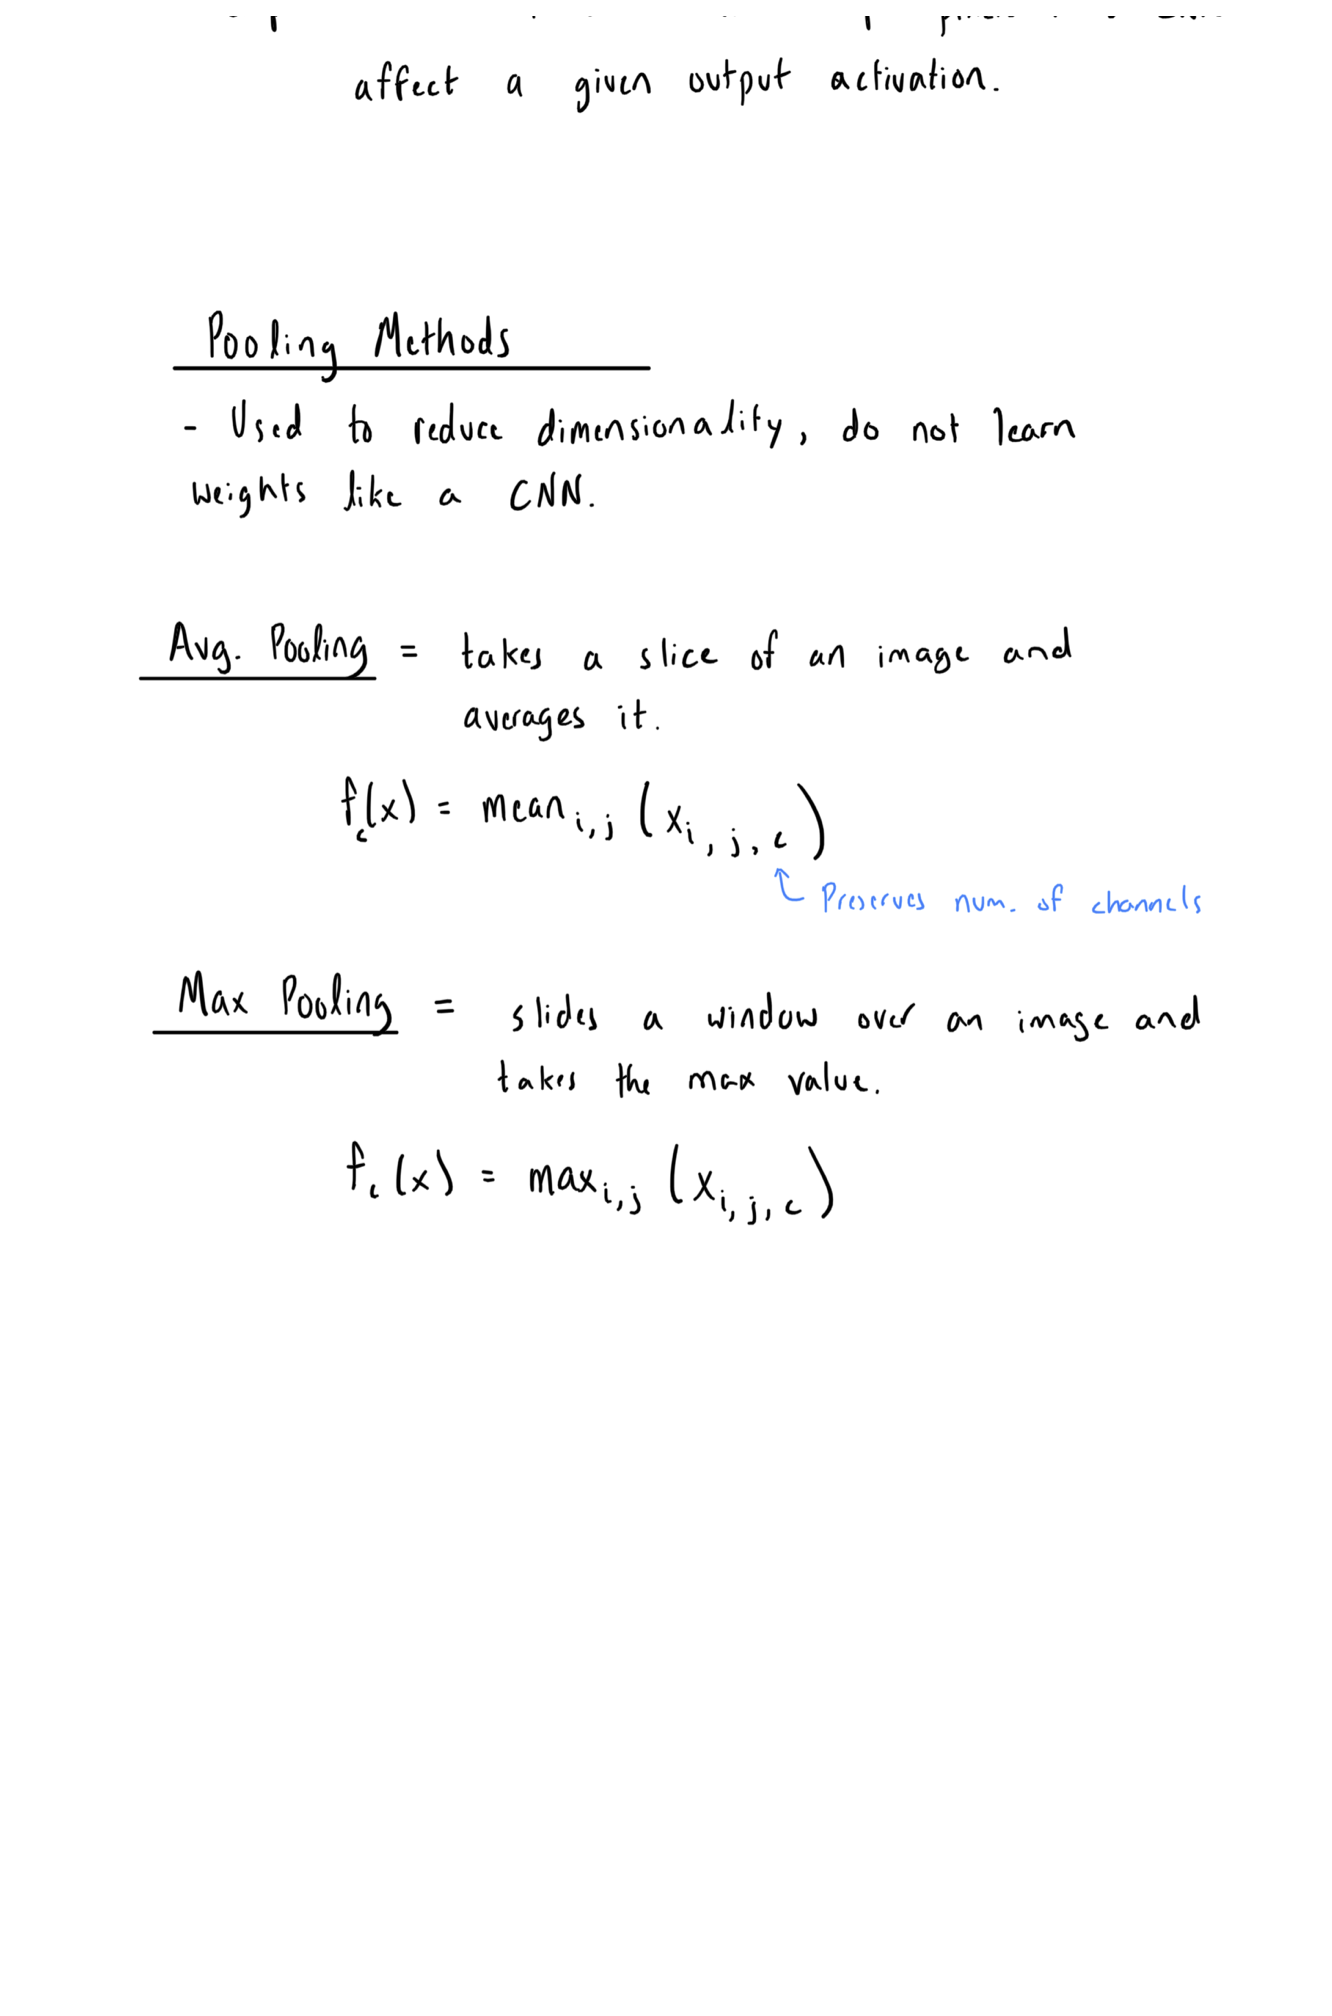 affect a given output activation.
Pooling Methods
- Used to reduce dimensionality, do not learn
weights like a CNN.
Avg. Pooling = takes a slice of an image and
averages it.
f_c(x) = mean_{i,j} (x_{i,j,c})
Preserves num. of channels
Max Pooling = slides a window over an image and
takes the max value.
f_c(x) = max_{i,j} (x_{i,j,c})